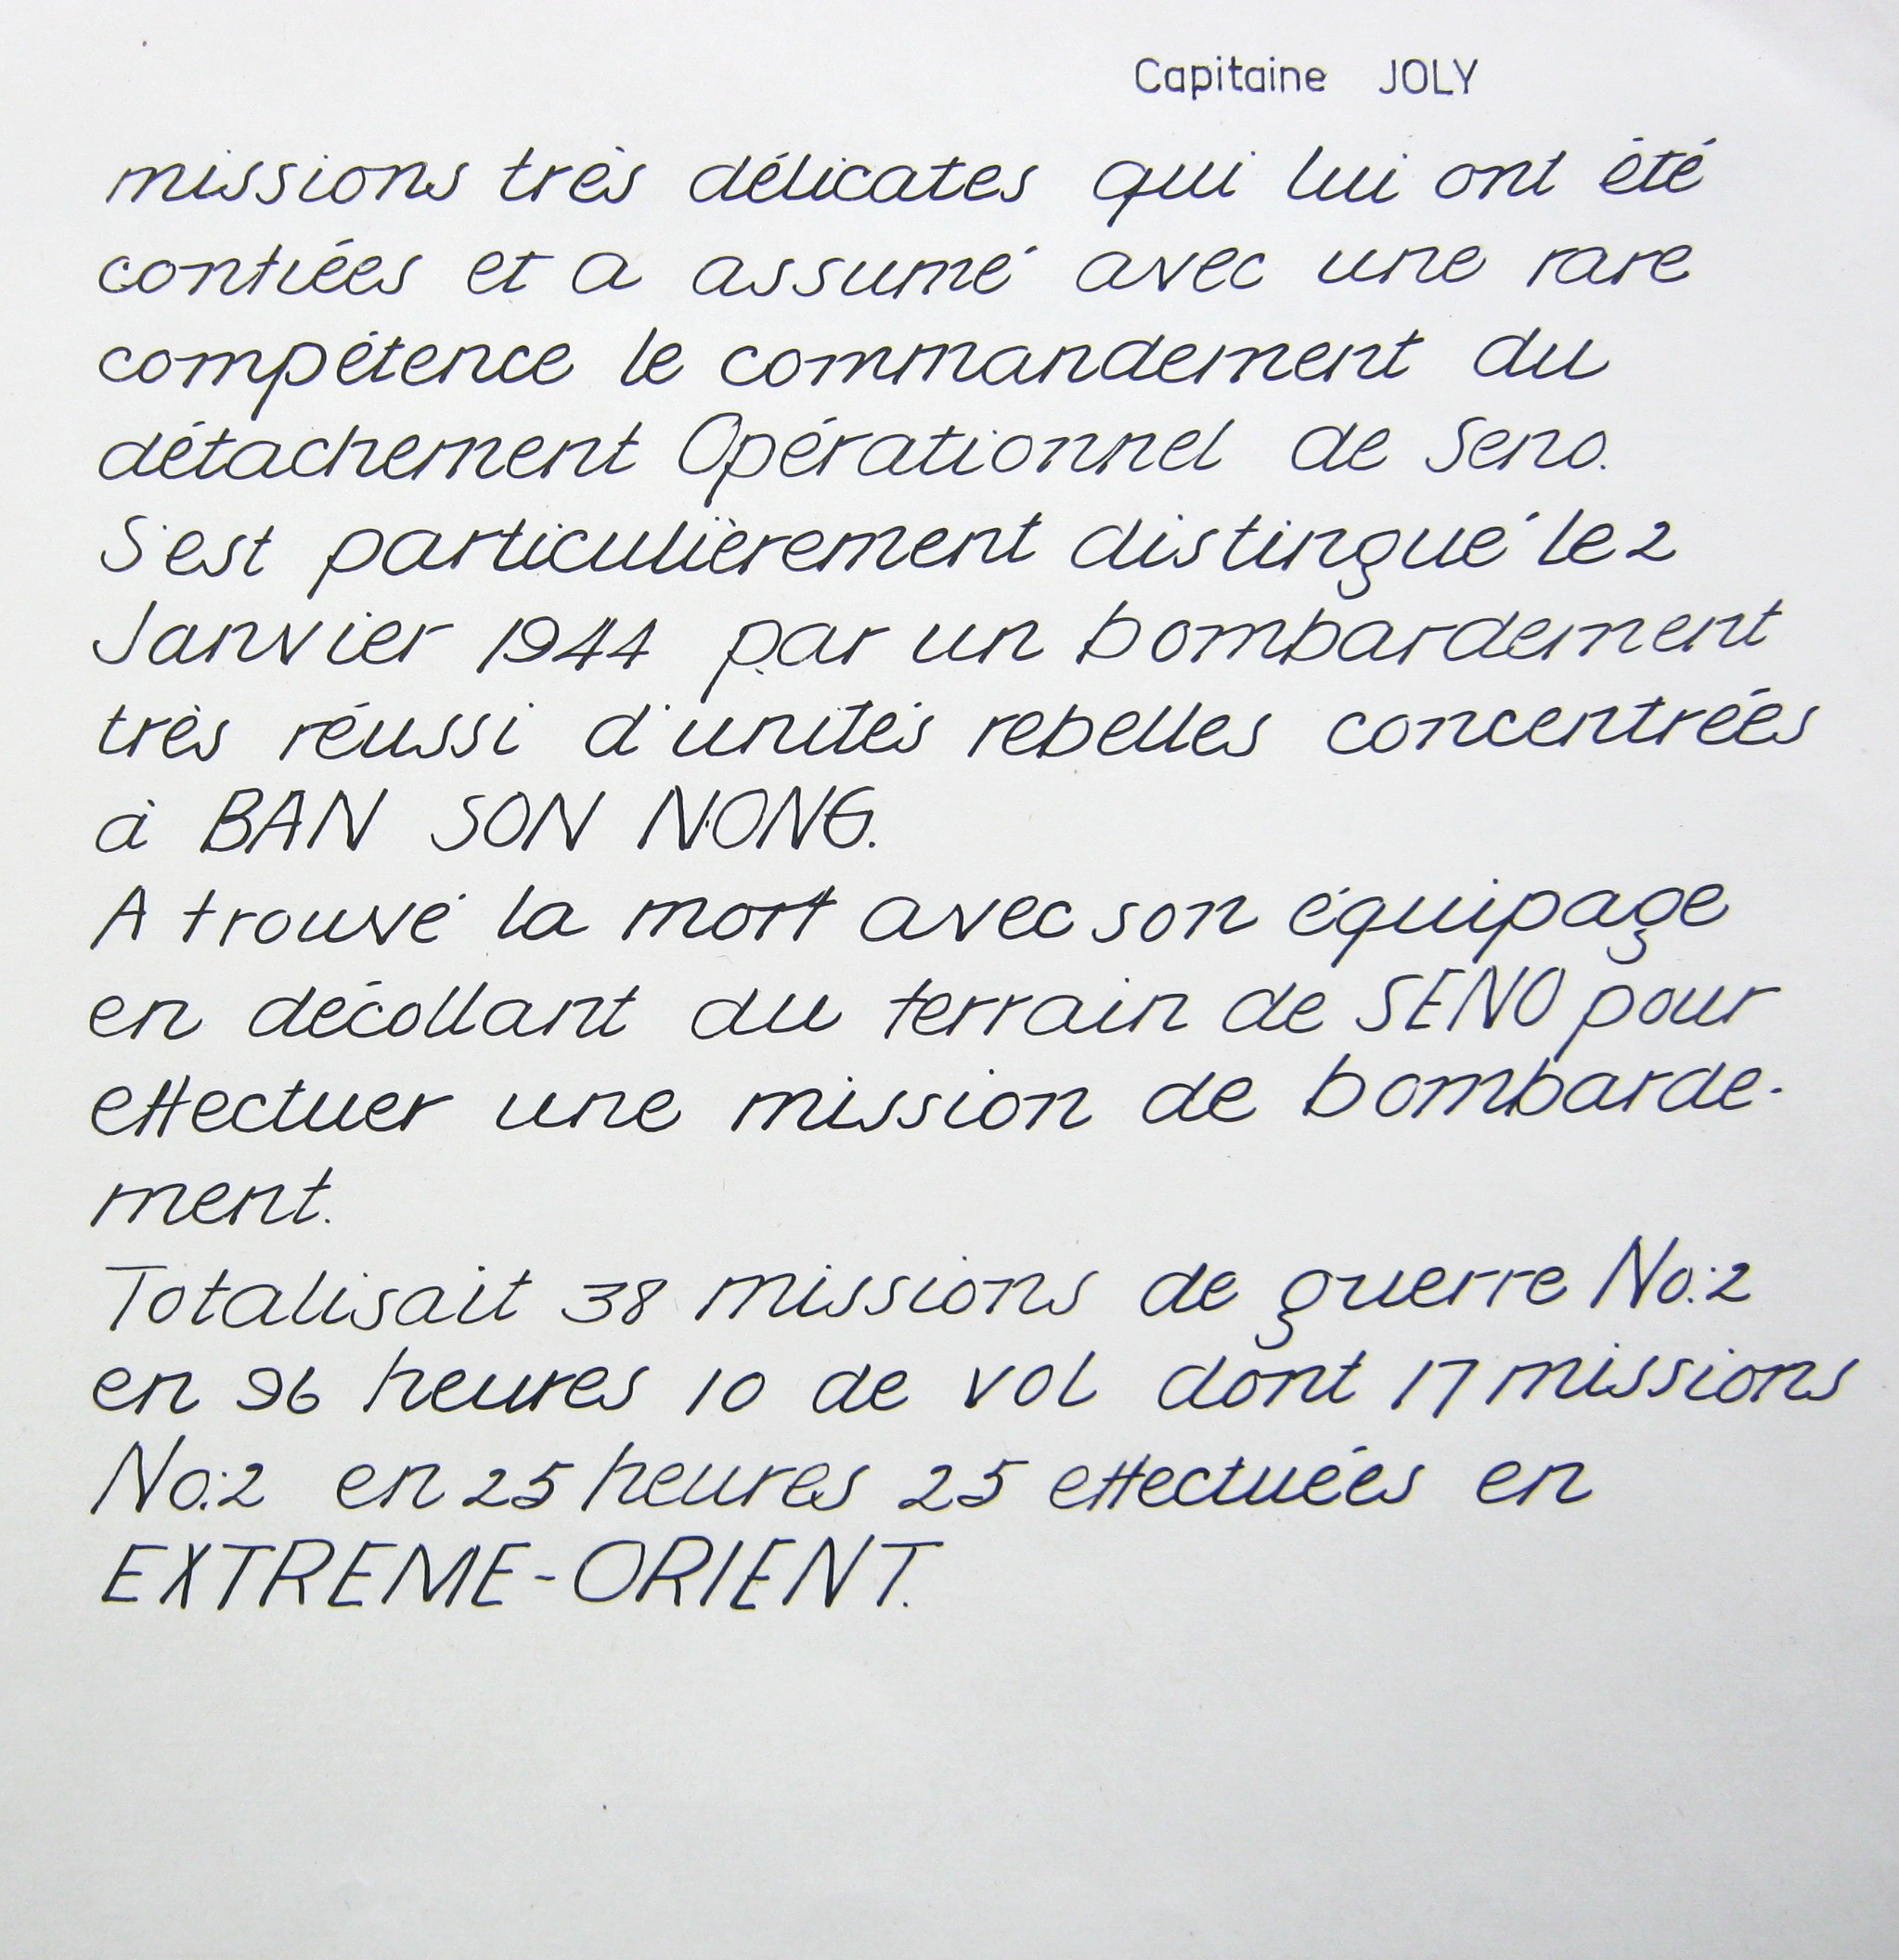 Capitaine JOLY
missions très délicates qui lui ont été
confiées et a assumé avec une rare
compétence le commandement du
détachement Opérationnel de Seno.
S'est particulièrement distingué le 2
Janvier 1944 par un bombardement
très réussi d'unités rebelles concentrées
à BAN SON NONG.
A trouvé la mort avec son équipage
en décollant du terrain de SENO pour
effectuer une mission de bombarde-
ment.
Totalisait 38 missions de guerre No:2
en 96 heures 10 de vol dont 17 missions
No:2 en 25 heures 25 effectuées en
EXTREME-ORIENT.